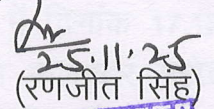 25.11.25
(रणजीत सिंह)